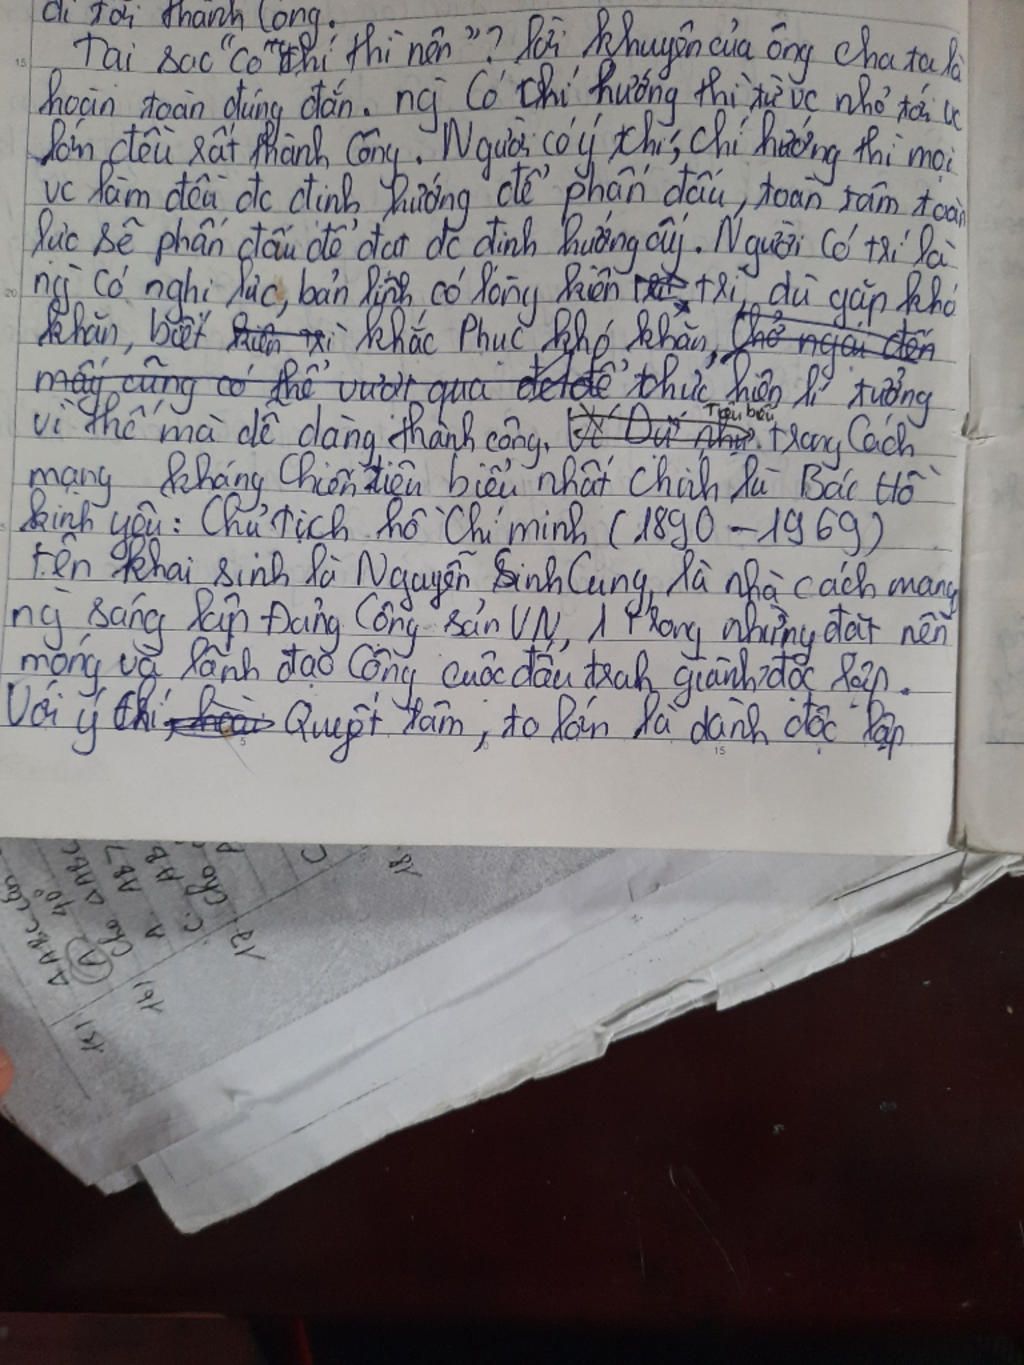 đi tới thành công.
Tai sao "Có chí thì nên"? Lời khuyên của ông cha ta là
hoàn toàn đúng đắn. ng` Có Chí hướng thì từ vc nhỏ tới vc
lớn đều rất thành Công. Người có ý chí, chí hướng thì mọi
vc làm đều đc định hướng để phấn đấu, toàn tâm toàn
lực sẽ phấn đấu để đạt đc định hướng ấy. Người Có trí là
ng` Có nghị lực, bản lĩnh có lòng kiên trì, dù gặp khó
khăn, biết kiên trì khắc Phục khó khăn, Chở ngại đến
mấy cũng có thể vượt qua để thực hiện lí tưởng
vì thế mà dễ dàng thành công. Ví Dụ như Tiêu biểu trong Cách
mạng kháng Chiến tiêu biểu nhất Chính là Bác Hồ
kính yêu: Chủ Tịch hồ Chí minh (1890-1969)
tên khai sinh là Nguyễn Sinh Cung, là nhà cách mạng
ng` sáng lập Đảng Công sản VN, 1 trong những đặt nền
móng và lãnh đạo Công cuộc đấu trah giành độc lập.
Với ý chí, hoài Quyết tâm, to lớn là dành độc lập
15
20
5
15
Δ ABC
40
A
Cho Δ ABC
A. AB
C. AB
15)
16)
17. Cho
18.